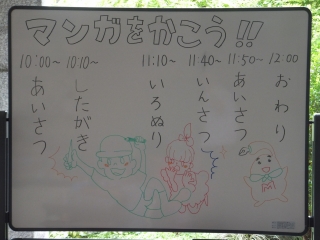 マンガをかこう!!
10:00~ 10:10~ 11:10~ 11:40~ 11:50~ 12:00
あいさつ
したがき
いろぬり
いんさつ
あいさつ
おわり